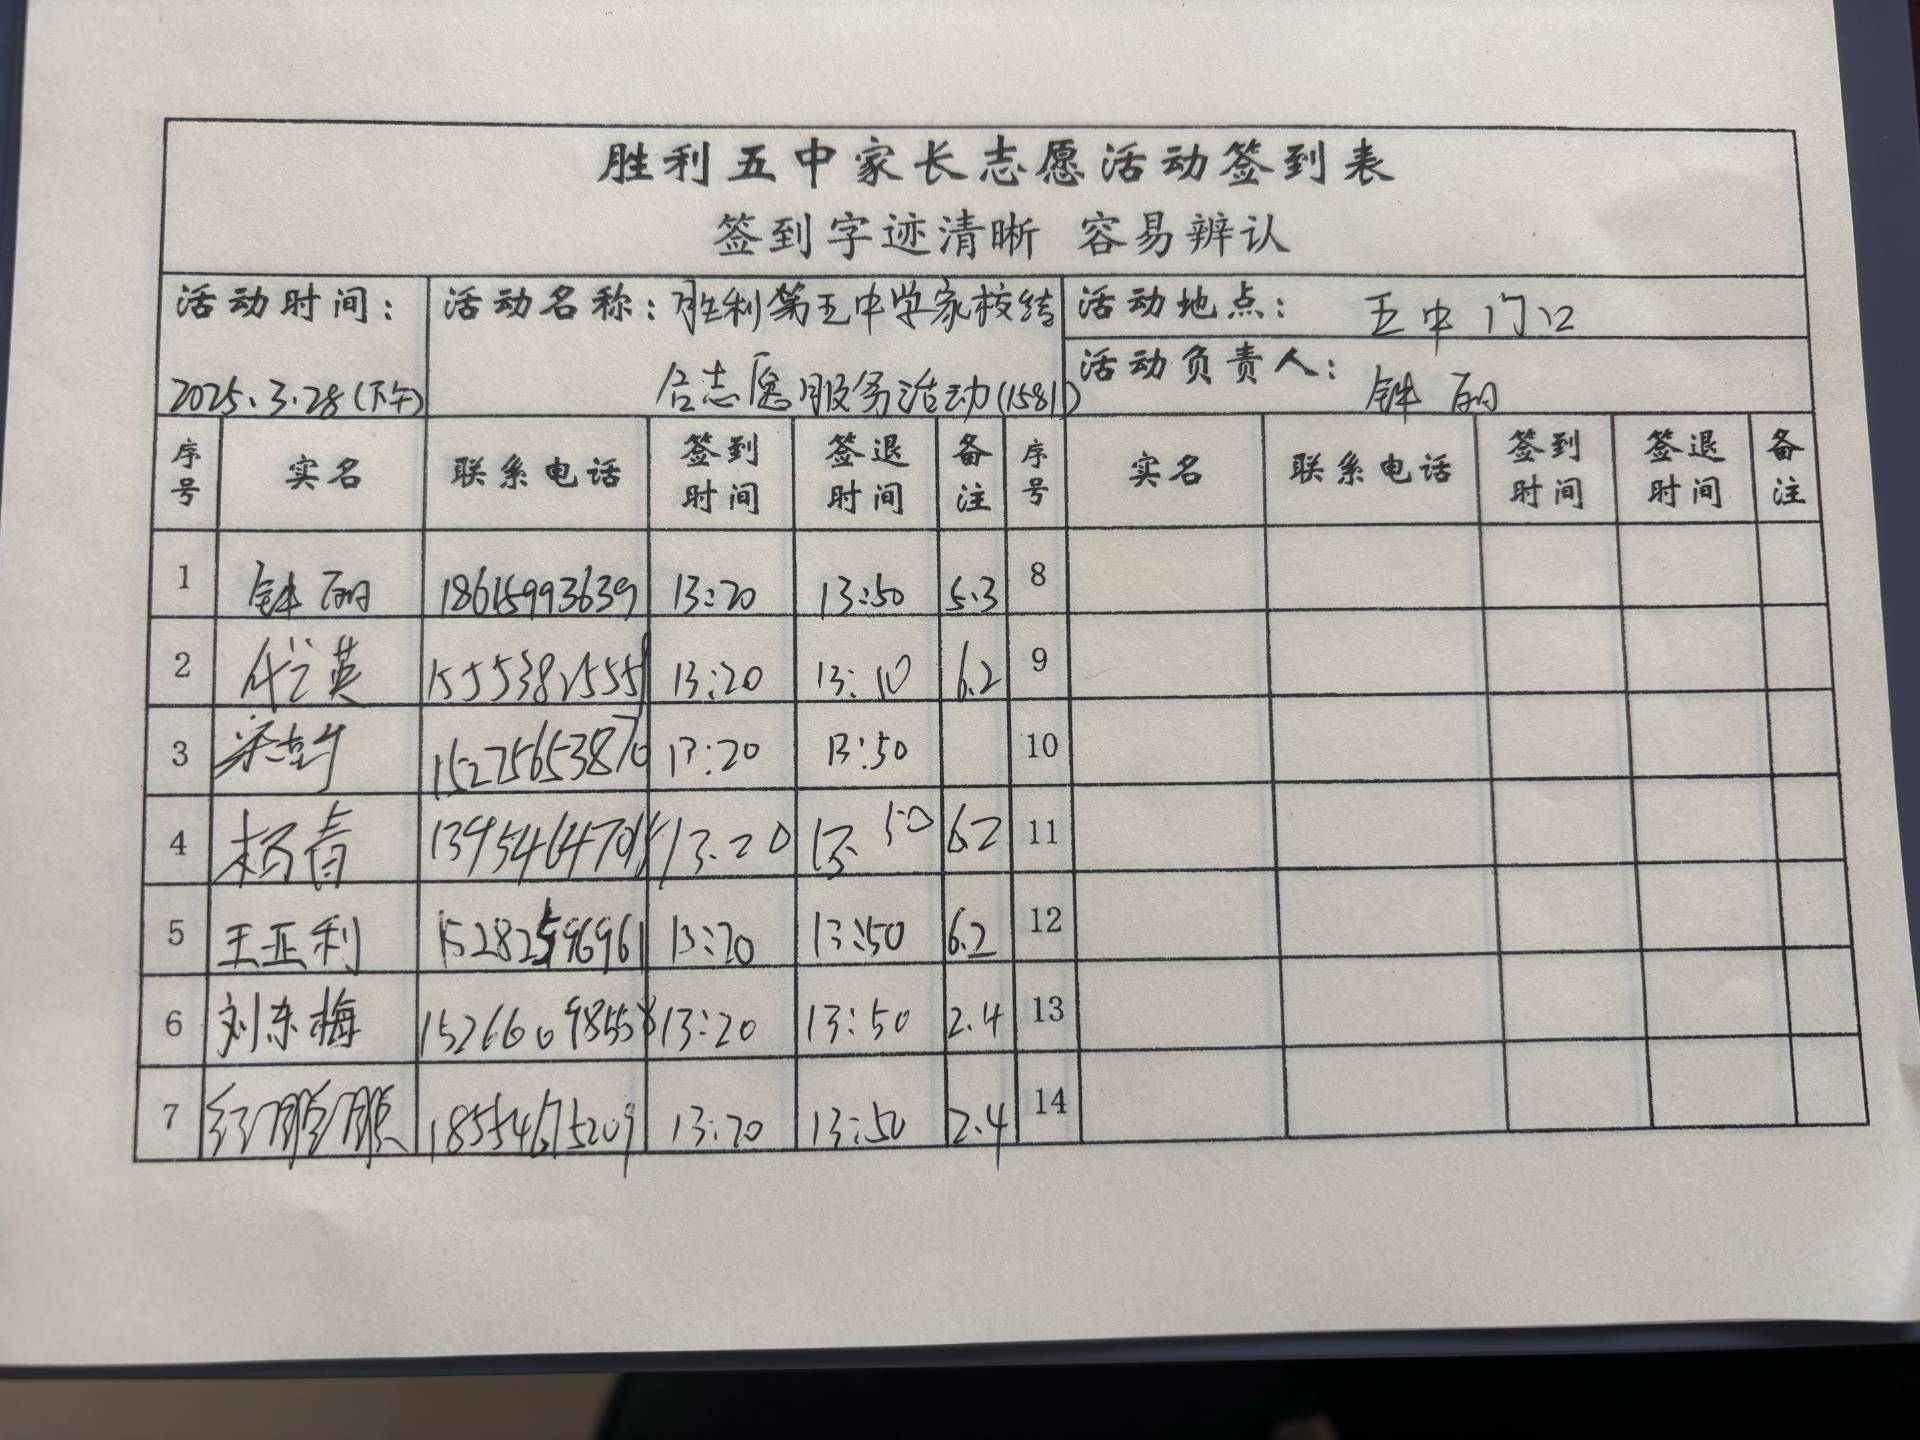 胜利五中家长志愿活动签到表
签到字迹清晰 容易辨认
活动时间： 活动名称：胜利第五中学家校结 活动地点： 五中门口
2025.3.28(下午) 合志愿服务活动(1581) 活动负责人： 钟丽
序号 实名 联系电话 签到时间 签退时间 备注 序号 实名 联系电话 签到时间 签退时间 备注
1 钟丽 18615993639 13:20 13:50 5.3 8
2 英 13:20 13:50 6.2 9
3 15275653870 13:20 13:50 10
4 杨春 13:20 13:50 6.2 11
5 王亚利 13:20 13:50 6.2 12
6 刘东梅 15266098558 13:20 13:50 2.4 13
7 18554675209 13:20 13:50 2.4 14